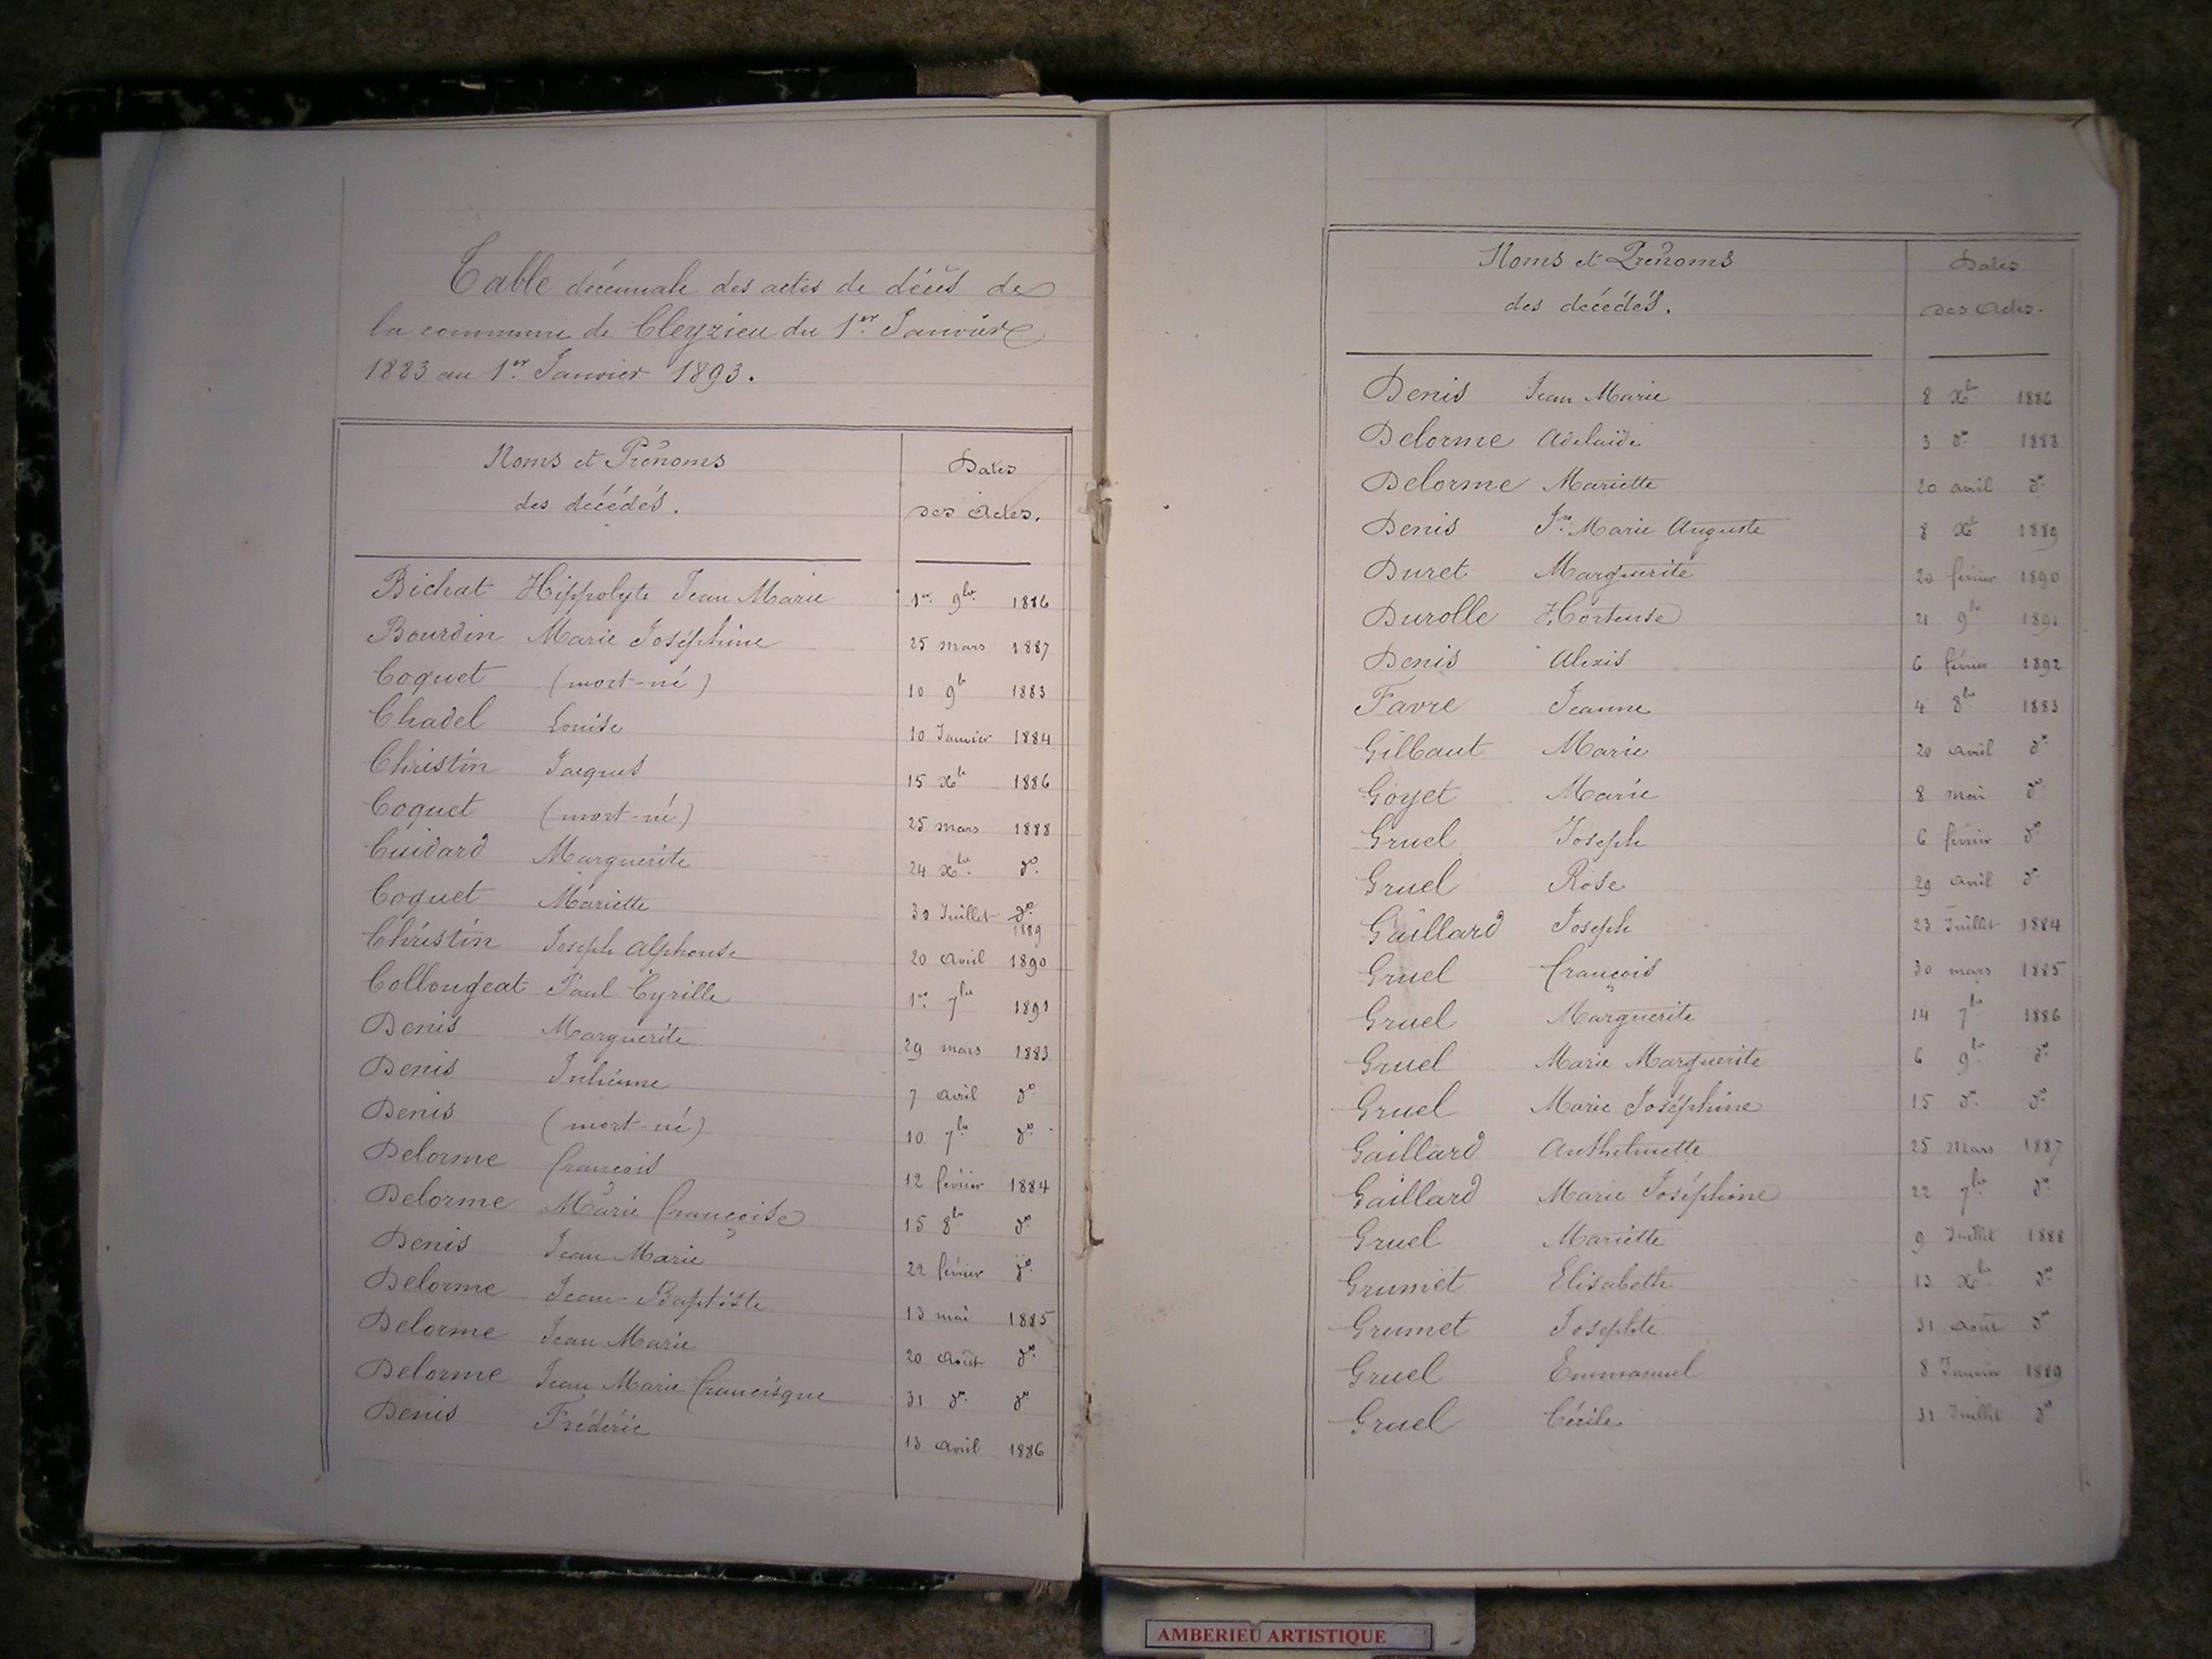 Table décennale des actes de décès de
la commune de Cleyzieu du 1er. Janvier
1883 au 1er. Janvier 1893.
Noms et Prénoms
des décédés.
Dates
des Actes.
Bichat Hippolyte Jean Marie 1er. 9bre. 1886
Bourdin Marie Joséphine 25 mars 1887
Coquet (mort-né) 10 9b 1883
Chadel Louise 10 Janvier 1884
Christin Jacques 15 Xb 1886
Coquet (mort-né) 25 mars 1888
Cuidard Marguerite 24 Xbre. do.
Coquet Mariette 30 Juillet do. 1889
Christin Joseph Alphonse 20 Avril 1890
Collongeat Paul Cyrille 1er. 7bre 1891
Denis Marguerite 29 mars 1883
Denis Julienne 7 avril do
Denis (mort-né) 10 7bre do
Delorme François 12 février 1884
Delorme Marie Françoise 15 8bre do
Denis Jean Marie 22 février do
Delorme Jean-Baptiste 13 mai 1885
Delorme Jean Marie 20 Août do
Delorme Jean Marie Francisque 31 do. do
Denis Frédéric 13 Avril 1886
Noms et Prénoms
des décédés.
Dates
des Actes.
Denis Jean Marie 8 Xbre 1886
Delorme Adelaïde 3 do. 1888
Delorme Mariette 20 avril do.
Denis Jn. Marie Auguste 8 Xb 1889
Duret Marguerite 20 février 1890
Durolle Hortense 21 9b 1891
Denis Alexis 6 février 1892
Favre Jeanne 4 8bre 1883
Gilbaut Marie 20 avril do
Goyet Marie 8 mai do
Gruel Joseph 6 février do
Gruel Rose 29 avril do
Gaillard Joseph 23 Juillet 1884
Gruel François 30 mars 1885
Gruel Marguerite 14 7bre. 1886
Gruel Marie Marguerite 6 9bre. do
Gruel Marie Joséphine 15 do. do
Gaillard Anthelmette 25 Mars 1887
Gaillard Marie Joséphine 22 7bre. do
Gruel Mariette 9 Juillet 1888
Grumet Elisabeth 13 Xbre. do
Grumet Josephte 31 août do
Gruel Emmanuel 8 Janvier 1889
Gruel Cécile 31 Juillet do
AMBERIEU ARTISTIQUE